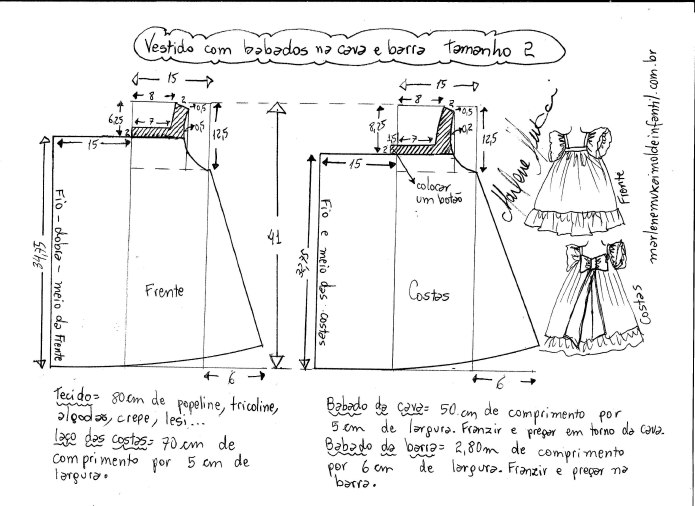 Vestido com babados na cava e barra tamanho 2
15
8
2
0,5
6,25
7
0,5
12,5
2
15
34,75
Fio - dobla - meio da frente
Frente
6
41
15
8
2
0,5
8,25
1,5
7
0,2
12,5
2
15
colocar
um botão
Fio e meio das costas
Costas
6
Marlene Mukai
Frente
Costas
marlenemukaimoldeinfantil.com.br
Tecido = 80 cm de popeline, tricoline,
algodão, crepe, lesi...
laço das costas = 70 cm de
comprimento por 5 cm de
largura.
Babado da cava = 50 cm de comprimento por
5 cm de largura. Franzir e pregar em torno da cava.
Babado da barra = 2,80m de comprimento
por 6 cm de largura. Franzir e pregar na
barra.